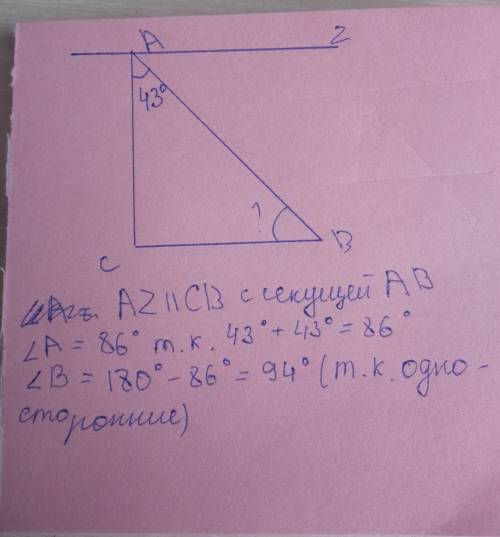 A Z
43°
?
C B
AZ || CB с секущей AB
∠A = 86° т.к. 43° + 43° = 86°
∠B = 180° - 86° = 94° (т.к. одно-
сторонние)